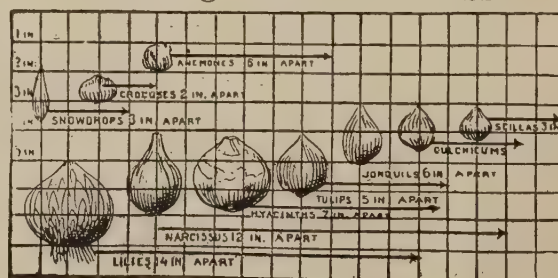 1 IN
2 IN.
ANEMONES 6 IN APART
3 IN
CROCUSES 2 IN. APART
IN
SNOWDROPS 3 IN. APART
SCILLAS 3 IN
COLCHICUMS
IN
JONQUILS 6 IN APART
TULIPS 5 IN APART
HYACINTHS 7 IN. APART
NARCISSUS 12 IN. APART
LILIES 14 IN APART